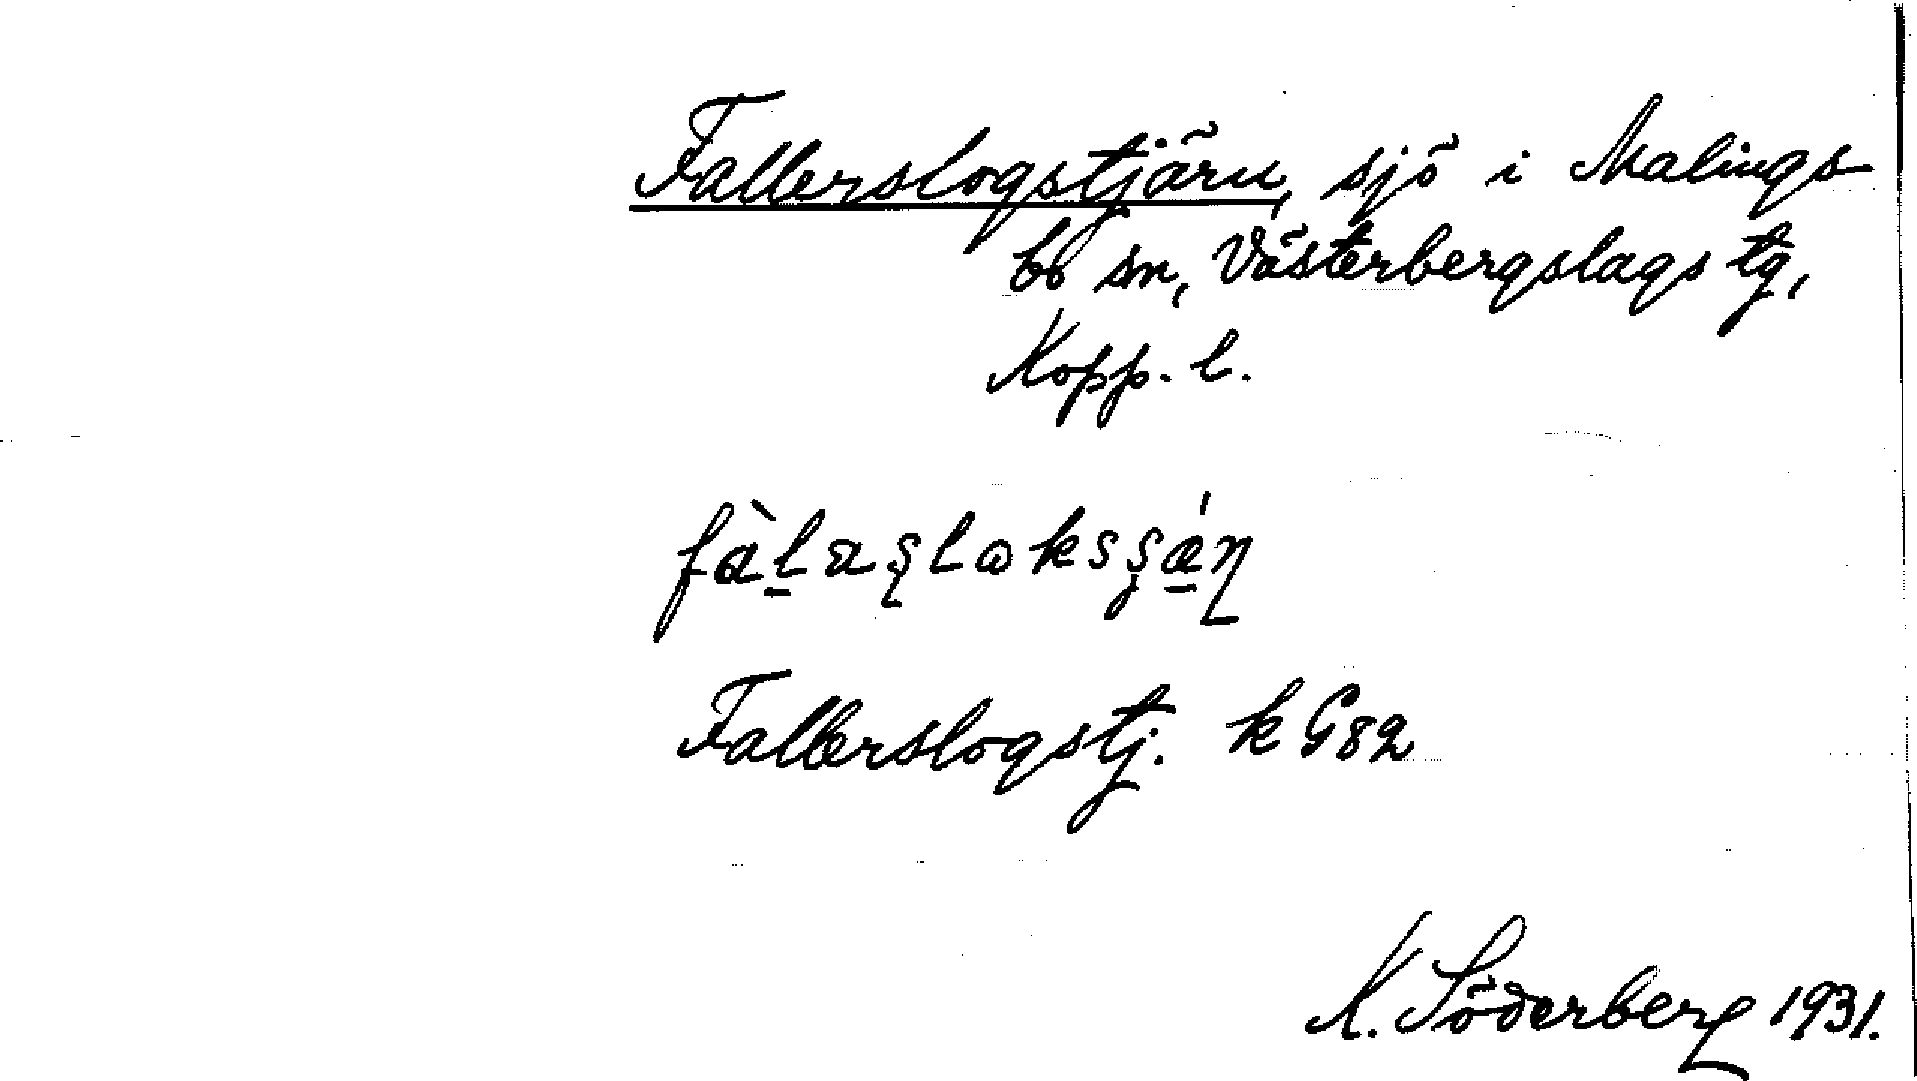 Fallerslogstjärn, sjö i Malings-
bo sn, Västerbergslags tg,
Kopp. l.
Fallerslogstj. k G82
K. Söderberg 1931.